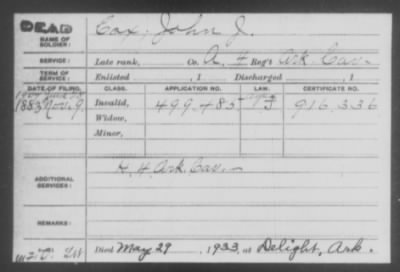 DEAD
NAME OF SOLDIER: Cox, John J.
SERVICE: Late rank, Co. A, 4 Reg't Ark. Cav.
TERM OF SERVICE: Enlisted , 1 Discharged , 1
DATE OF FILING. CLASS. APPLICATION NO. LAW. CERTIFICATE NO.
1883 Nov. 9 Invalid, 499.485 J 916.336
Widow,
Minor,
ADDITIONAL SERVICES: 4 Ark. Cav.
REMARKS:
Died May 29, 1933, at Delight, Ark.